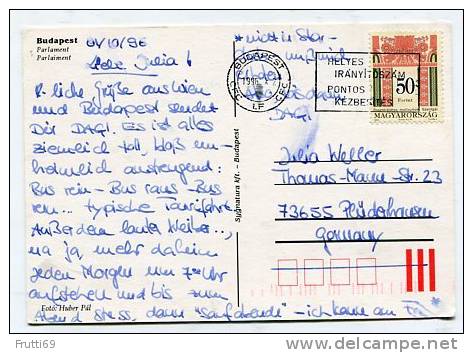 Budapest
Parlament
Parlaiment
01/10/96
Liebe Julia!
H. liche Grüße aus Wien
und Budapest sendet
Dir DAGI. Es ist alles
ziemlich toll, bloß un-
heimlich anstrengend:
Bus rein - Bus raus - Bus
rein... typische
Außerdem lauter Weiber...,
na ja, mehr daheim
jeden Morgen um 7 Uhr
aufstehen und bis zum
Abend Stress, dann "saufabende" - ich kann am
Foto: Huber Pál
Signatura kft. - Budapest
* nicht in
DAGI
BUDAPEST
1996
HELYES
IRÁNYÍTÓSZÁM
PONTOS
KÉZBESÍTÉS
50
Forint
MAGYARORSZÁG
Julia Weller
Thomas-Mann-Str. 23
73655 Plüderhausen
Germany
Frutti69
www.delcampe.net